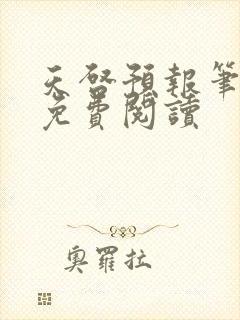 天啓預報筆
免費閱讀
奧羅拉